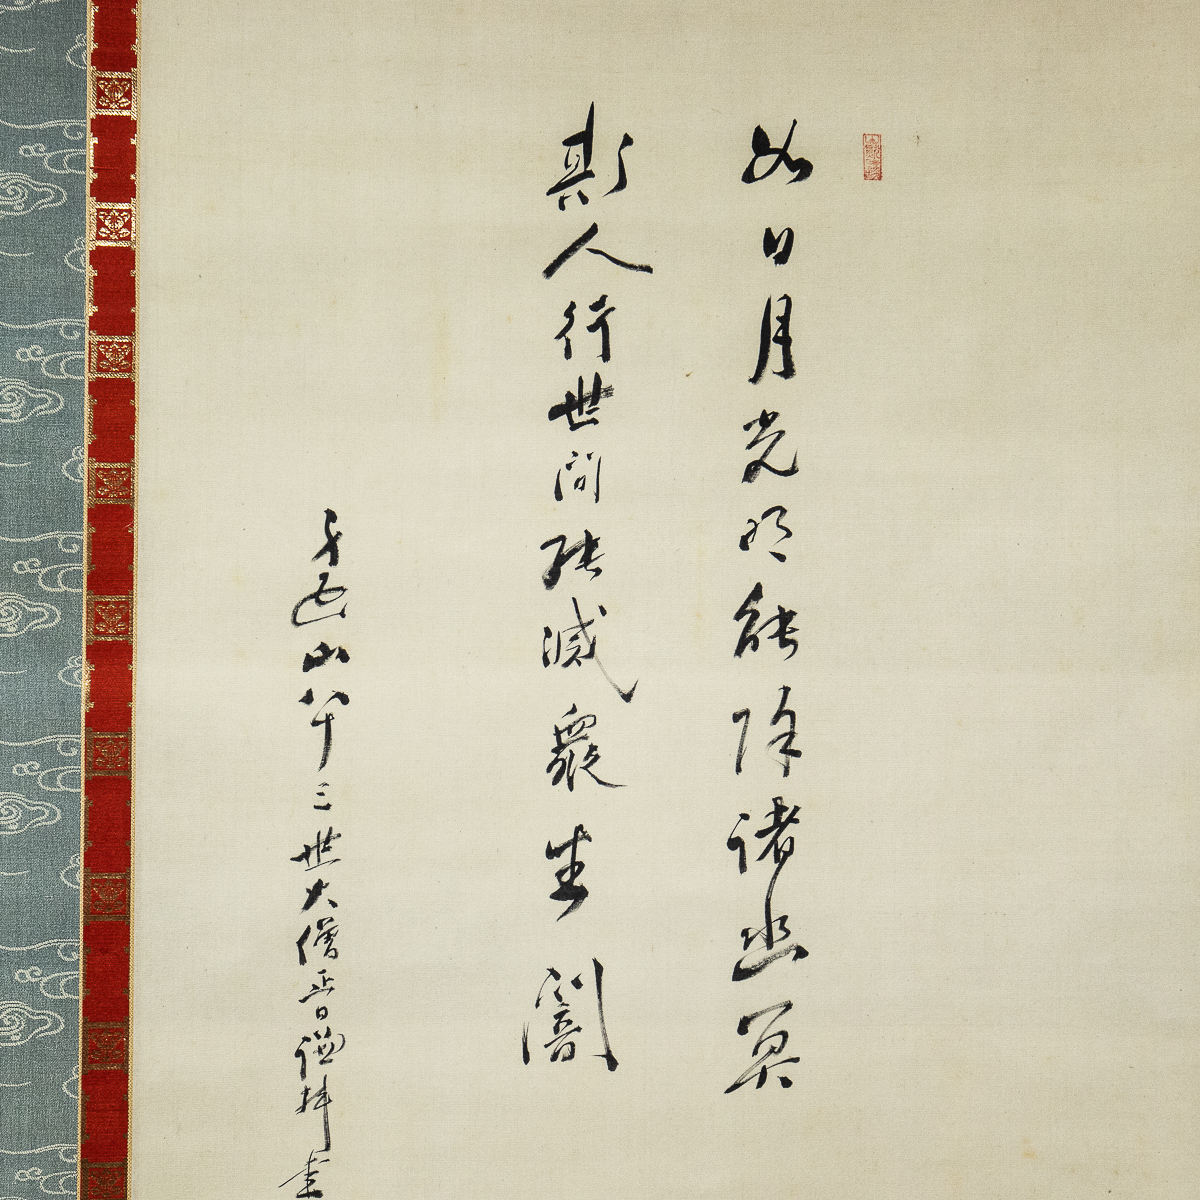 如日月光明能除諸幽冥
斯人行世間能滅衆生闇
身延山八十三世大僧正日謙拝書